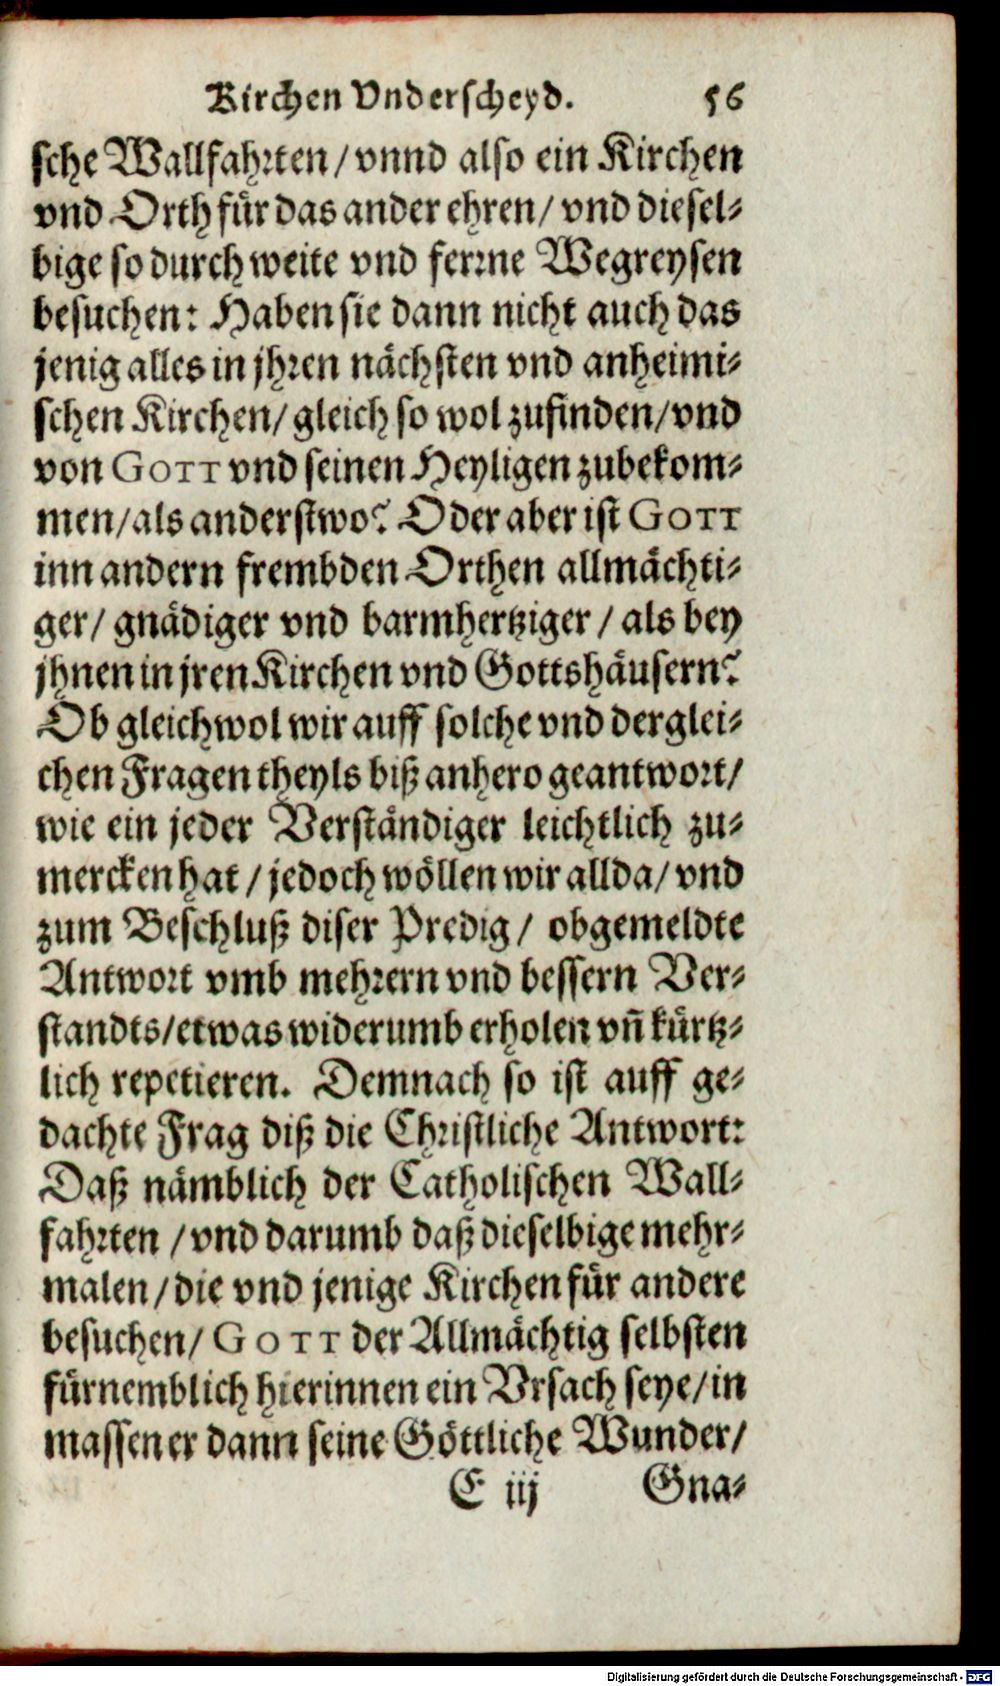 Kirchen Vnderscheyd. 56
sche Wallfahrten/ vnnd also ein Kirchen
vnd Orth für das ander ehren/ vnd diesel-
bige so durch weite vnd ferrne Wegreysen
besuchen: Haben sie dann nicht auch das
jenig alles in jhren nächsten vnd anheimi-
schen Kirchen/ gleich so wol zufinden/ vnd
von GOTT vnd seinen Heyligen zubekom-
men/ als anderstwo? Oder aber ist GOTT
inn andern frembden Orthen allmächti-
ger/ gnädiger vnd barmhertziger/ als bey
jhnen in jren Kirchen vnd Gottshäusern?
Ob gleichwol wir auff solche vnd derglei-
chen Fragen theyls biß anhero geantwort/
wie ein jeder Verständiger leichtlich zu-
mercken hat/ jedoch wöllen wir allda/ vnd
zum Beschluß diser Predig/ obgemeldte
Antwort vmb mehrern vnd bessern Ver-
standts/ etwas widerumb erholen vñ kürtz-
lich repetieren. Demnach so ist auff ge-
dachte Frag diß die Christliche Antwort:
Daß nämblich der Catholischen Wall-
fahrten/ vnd darumb daß dieselbige mehr-
malen/ die vnd jenige Kirchen für andere
besuchen/ GOTT der Allmächtig selbsten
fürnemblich hierinnen ein Vrsach seye/ in
massen er dann seine Göttliche Wunder/
E iij Gna-
Digitalisierung gefördert durch die Deutsche Forschungsgemeinschaft - DFG